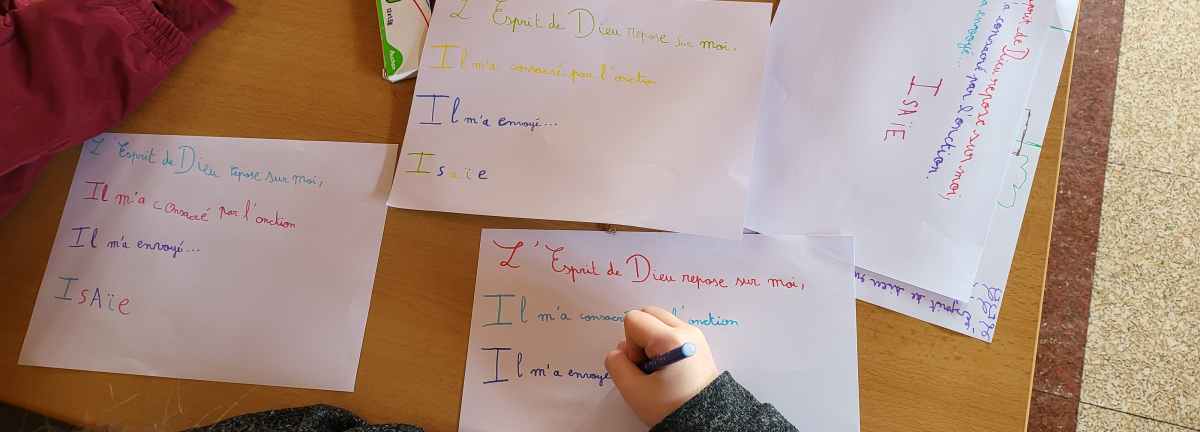 L'Esprit de Dieu repose sur moi,
Il m'a consacré par l'onction
Il m'a envoyé...
IsAïe
L'Esprit de Dieu repose sur moi,
Il m'a consacré par l'onction
Il m'a envoyé...
Isaïe
L'Esprit de Dieu repose sur moi,
Il m'a consacré l'onction
Il m'a envoyé
de Dieu repose sur moi,
consacré par l'onction.
envoyé...
ISAÏE
esprit de dieu